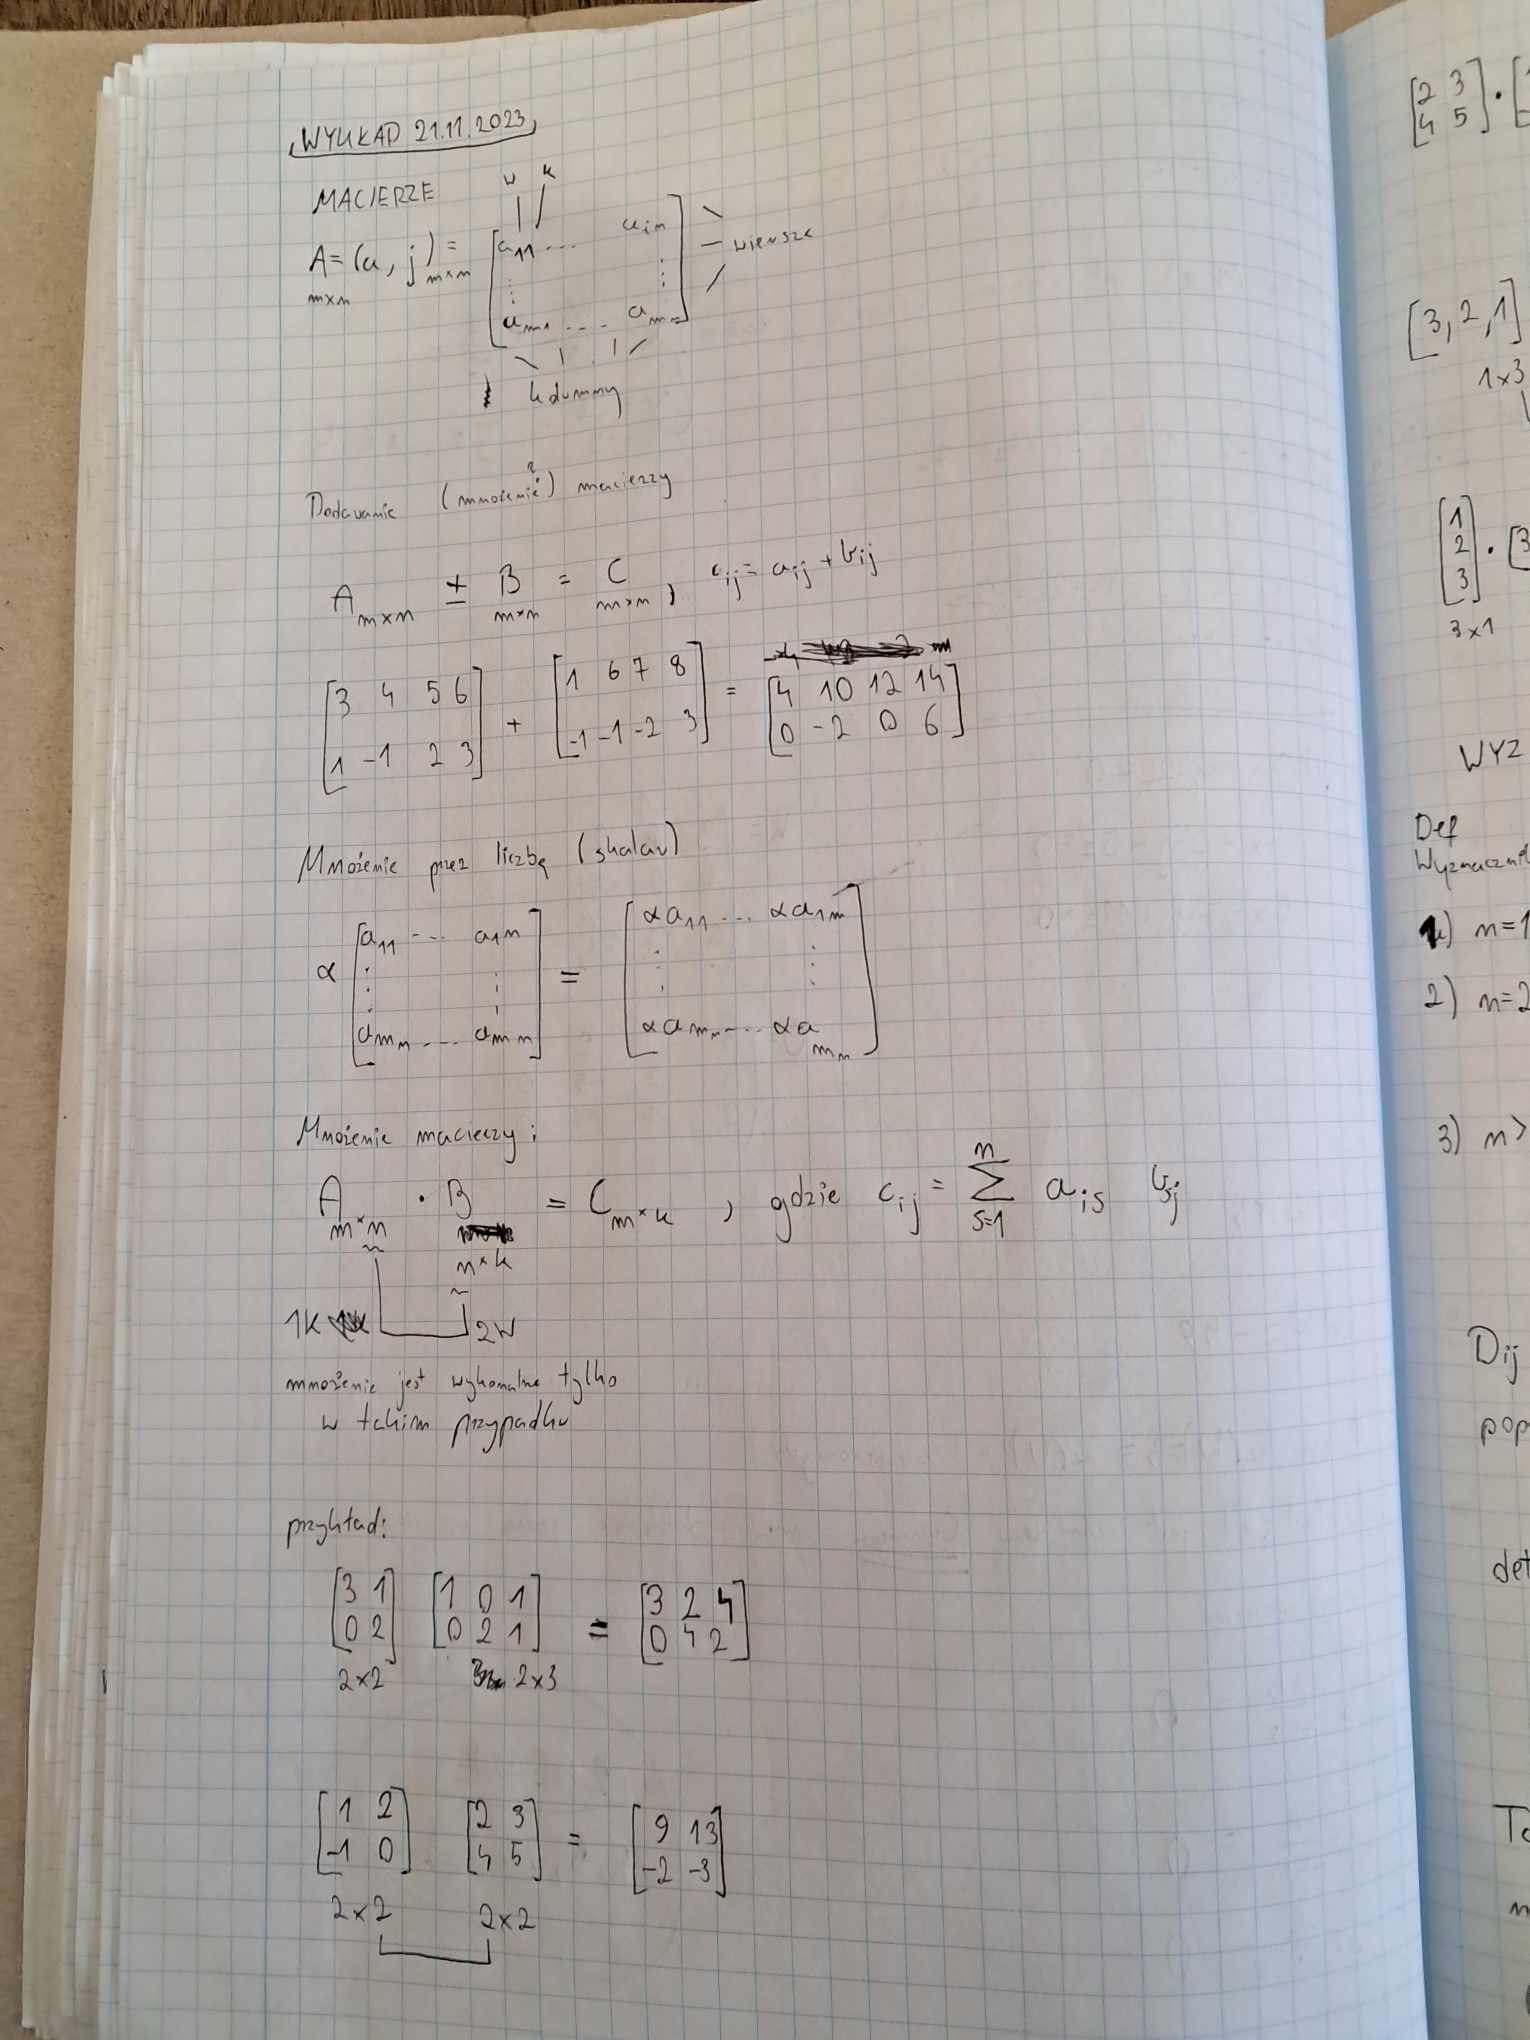 WYKŁAD 21.11.2023
MACIERZE
w k
A = (a, j)m×n = [a11 ... ain
m×n
⋮ ⋮
am1 ... amn]
wiersze
kolumny
Dodawanie (mnożenie?) macierzy
Am×n ± Bm×n = Cm×n, cij = aij + bij
[3 4 5 6 + [1 6 7 8 = [4 10 12 14
1 -1 2 3] -1 -1 -2 3] 0 -2 0 6]
Mnożenie przez liczbę (skalar)
α [a11 ... a1n = [αa11 ... αa1n
⋮ ⋮ ⋮ ⋮
amn ... amn] αamn ... αamn]
Mnożenie macierzy:
Am×n · B = Cm×k, gdzie cij = Σ s=1 n ais bsj
n×k
1K 2W
mnożenie jest wykonalne tylko
w takim przypadku
przykład:
[3 1 [1 0 1 = [3 2 4
0 2] 0 2 1] 0 4 2]
2×2 2×3
[1 2 [2 3 = [9 13
-1 0] 4 5] -2 -3]
2×2 2×2
[2 3
4 5] ·
[3, 2, 1]
1×3
[1
2
3] · [3
3×1
WYZ
Def
Wyznacznik
1) n=1
2) n=2
3) n>
Dij
pop
det